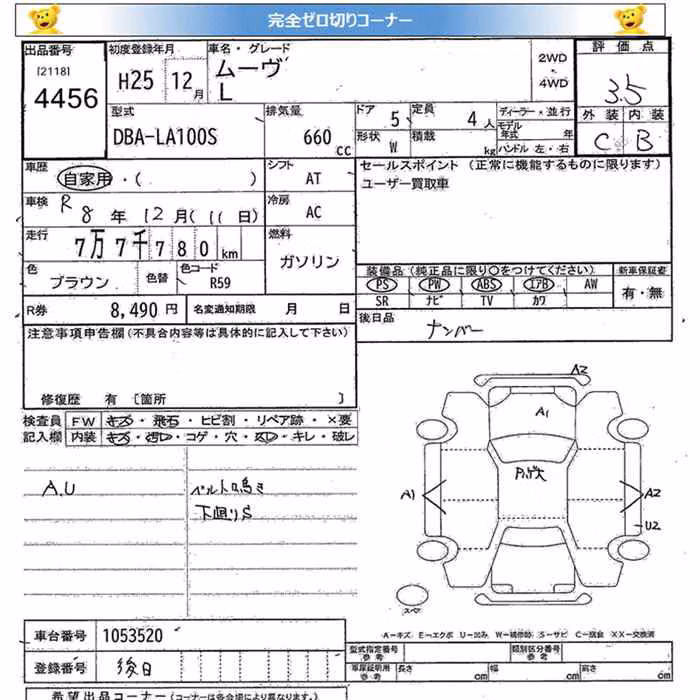 完全ゼロ切りコーナー
出品番号 初度登録年月 車名・グレード 2WD・4WD 評価点
[2118]
4456 H25 12月 ムーヴ 3.5
L
型式 排気量 ドア 5 定員 4人 ディーラー・並行 外装 内装
DBA-LA100S 660cc 形状 W 積載 kg モデル年式 年 C B
ハンドル 左・右
車歴 シフト セールスポイント (正常に機能するものに限ります)
自家用・( ) AT ユーザー買取車
車検 R8年12月(11日) 冷房 AC
走行 7万7千780km 燃料 ガソリン
色 ブラウン 色替 色コード R59
装備品(純正品に限り○をつけてください) 新車保証書
PS PW ABS エアB AW 有・無
SR ナビ TV カワ
R券 8,490円 名変通知期限 月 日 後日品 ナンバー
注意事項申告欄(不具合内容等は具体的に記入して下さい)
修復歴 有 [箇所 ]
検査員 FW キズ・飛石・ヒビ割・リペア跡・×要
記入欄 内装 キズ・汚レ・コゲ・穴・スレ・キレ・破レ
A.U ベルト鳴き
下廻りS
A2
A1
A1 A2
U2
スペア
A-キズ E-エクボ U-凹み W-補修跡 S-サビ C-腐食 XX-交換済
車台番号 1053520
型式指定番号 参考 類別区分番号 参考
登録番号 後日 車庫証明用 参考 長さ cm 幅 cm 高さ cm
希望出品コーナー(コーナーは各会場により異なります。)